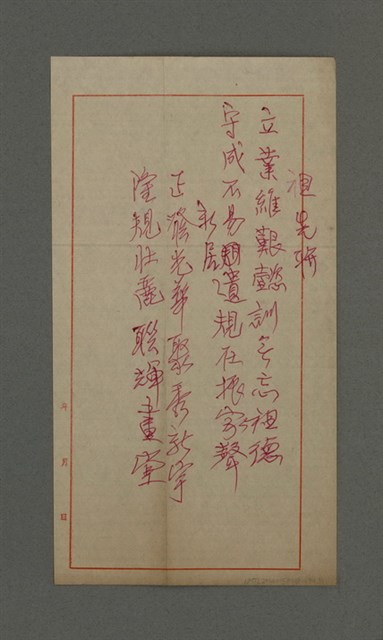 祖先聯
立業維艱懿訓無忘祖德
守成不易遺規在振家聲
新居
正發光華聚秀新宇
隆規壯麗聯輝畫堂
年 月 日